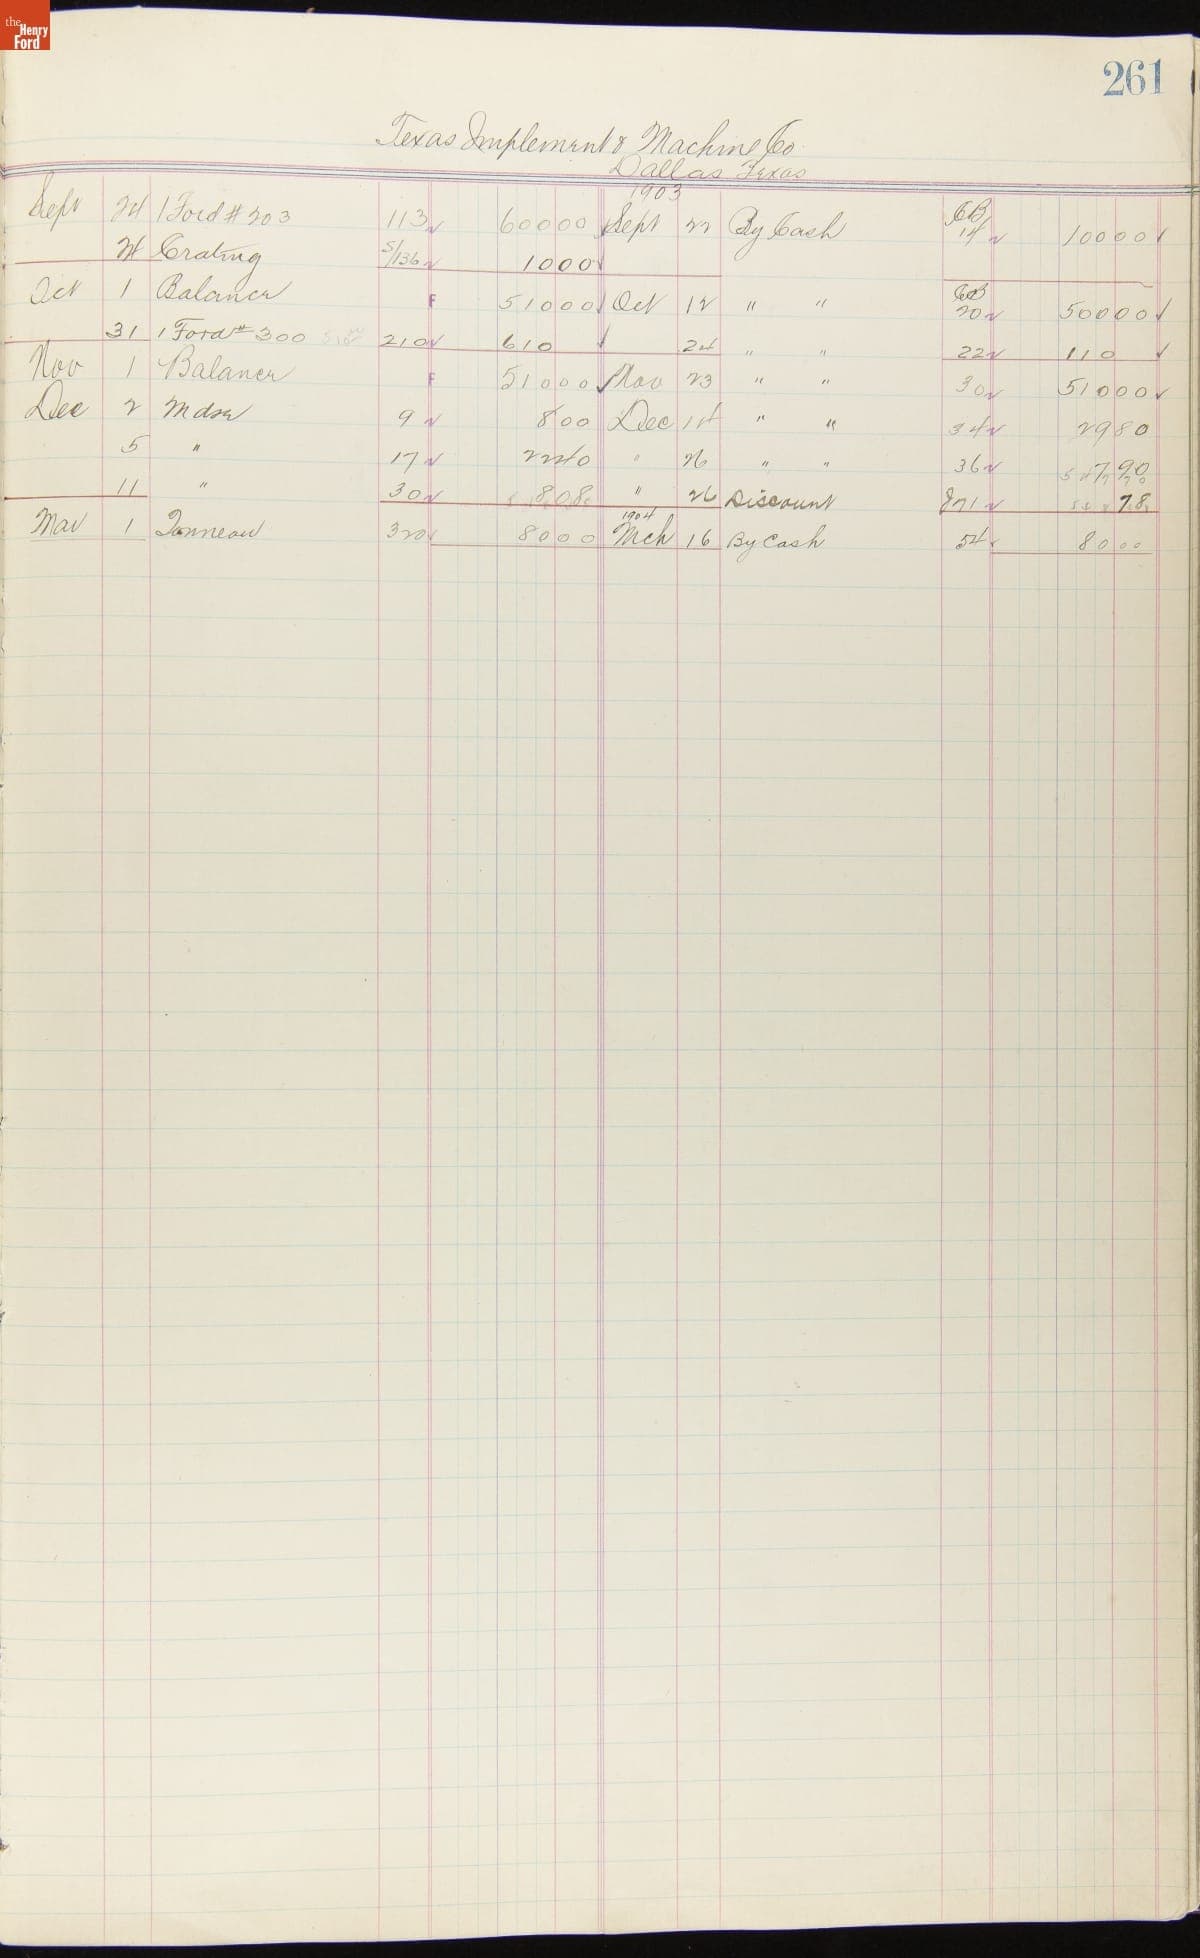 the Henry Ford
261
Texas Implement & Machine Co
Dallas Texas
1903
Sept 24 1 Ford # 203 113 600 00 Sept 22 By Cash CB 14 100 00
24 Crating S/136 10 00
Oct 1 Balance F 510 00 Oct 12 " " CB 20 500 00
31 1 Ford # 300 210 610 24 " " 22 110
Nov 1 Balance F 510 00 Nov 23 " " 30 510 00
Dec 2 Mdse 9 8 00 Dec 14 " " 34 29 80
5 " 17 22 40 " 26 " " 36 7 90
11 " 30 8 08 " 26 Discount 78
1904
Mar 1 Tonneau 320 80 00 Mch 16 By Cash 54 80 00